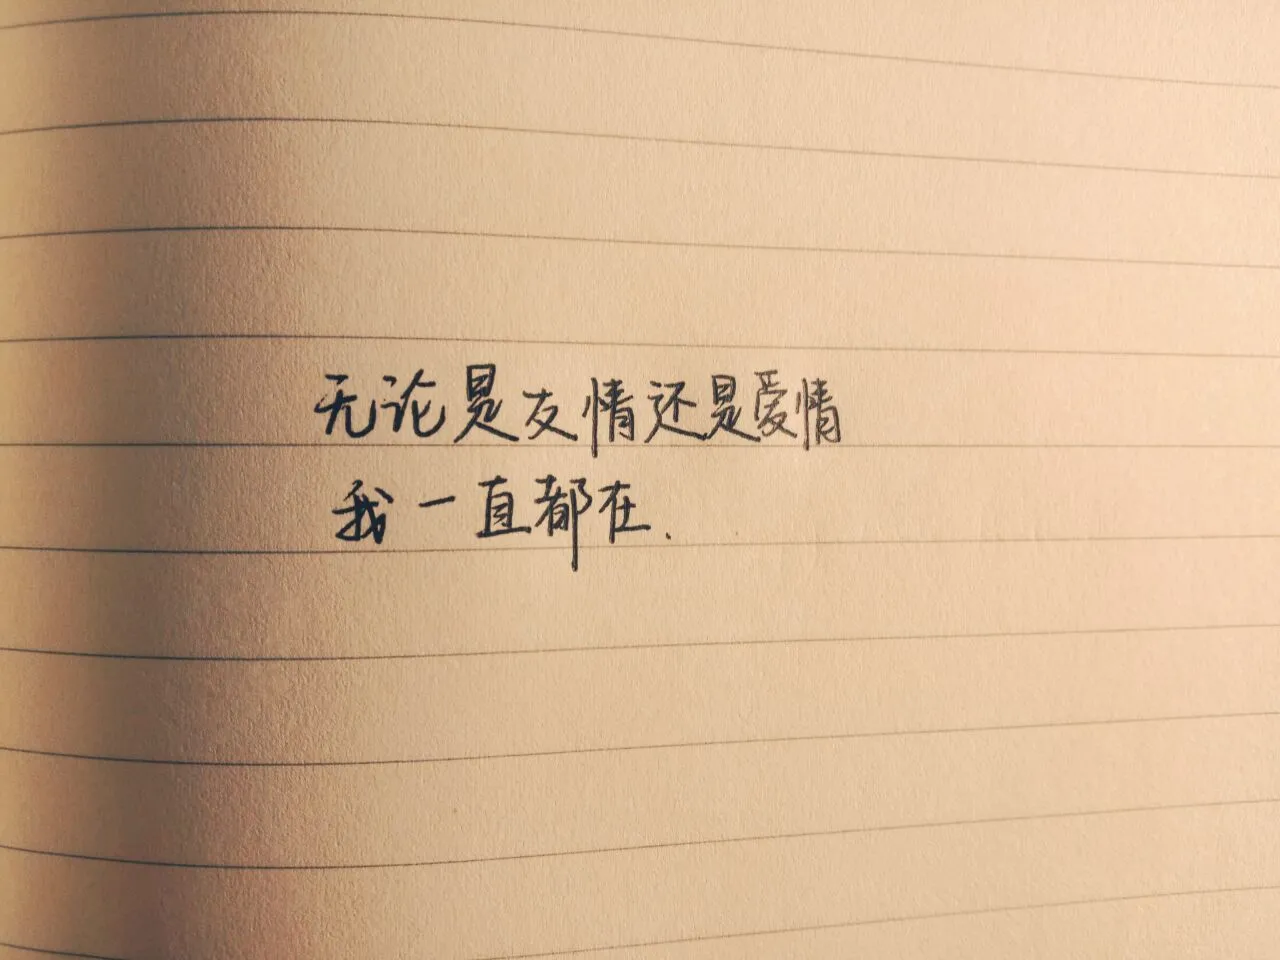 无论是友情还是爱情
我一直都在.